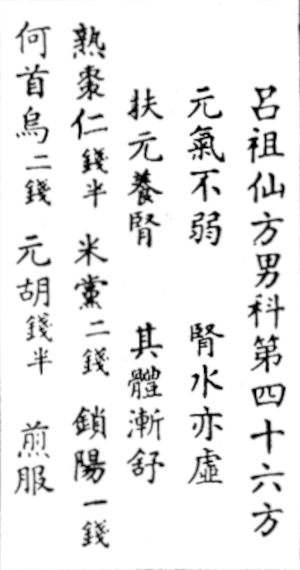 呂祖仙方男科第四十六方
元氣不弱 腎水亦虛
扶元養腎 其體漸舒
熟棗仁錢半 米黨二錢 鎖陽一錢
何首烏二錢 元胡錢半 煎服